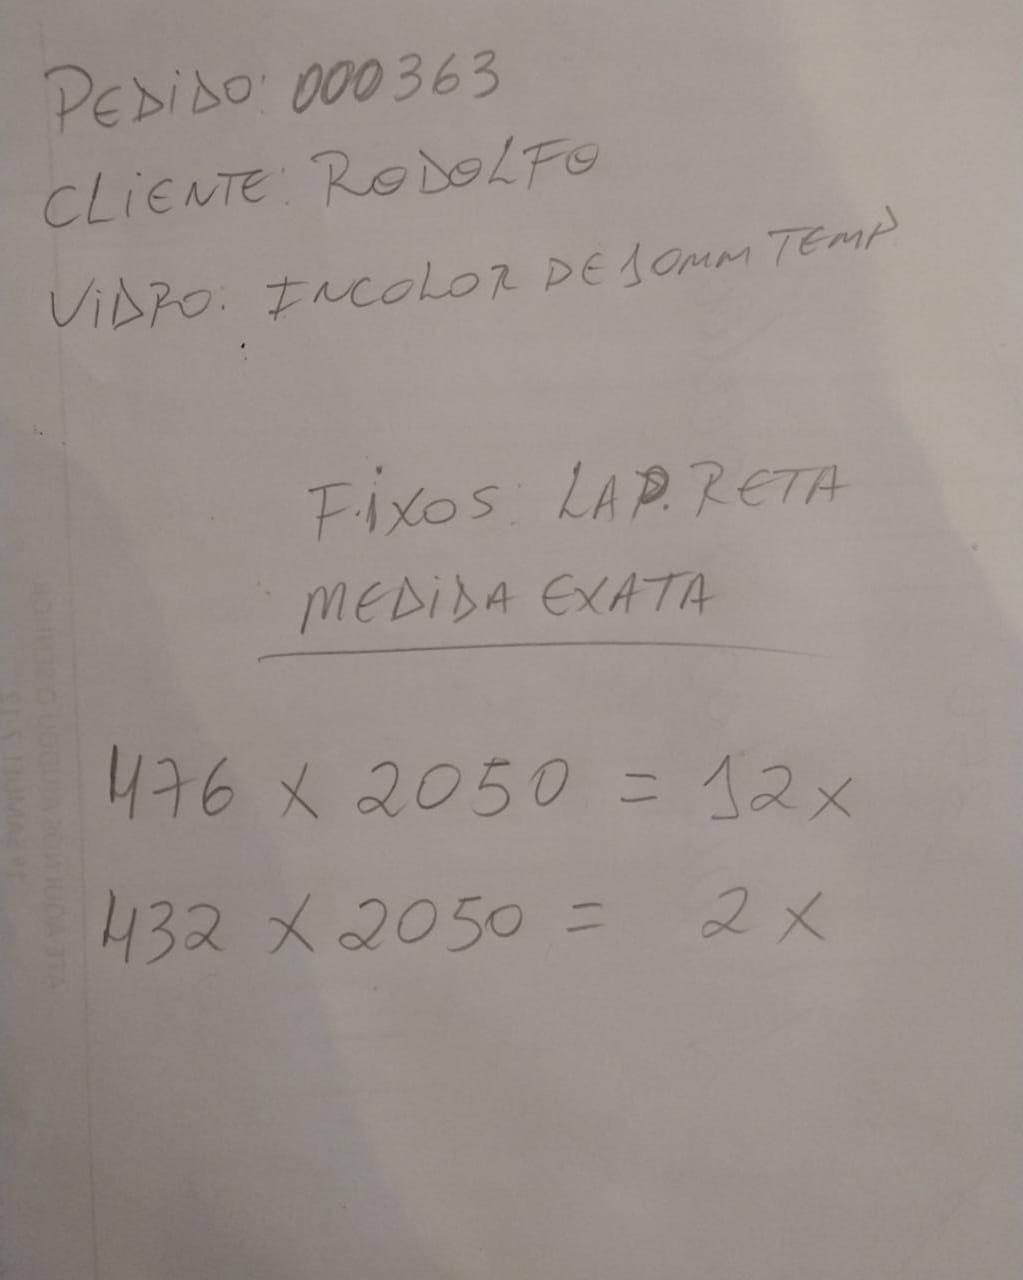 PEDiDO: 000363
CLiENTE: RODOLFO
ViDRO: INCOLOR DE 10MM TEMP
FiXOS: LAP. RETA
MEDiDA EXATA
476 x 2050 = 12x
432 x 2050 = 2x